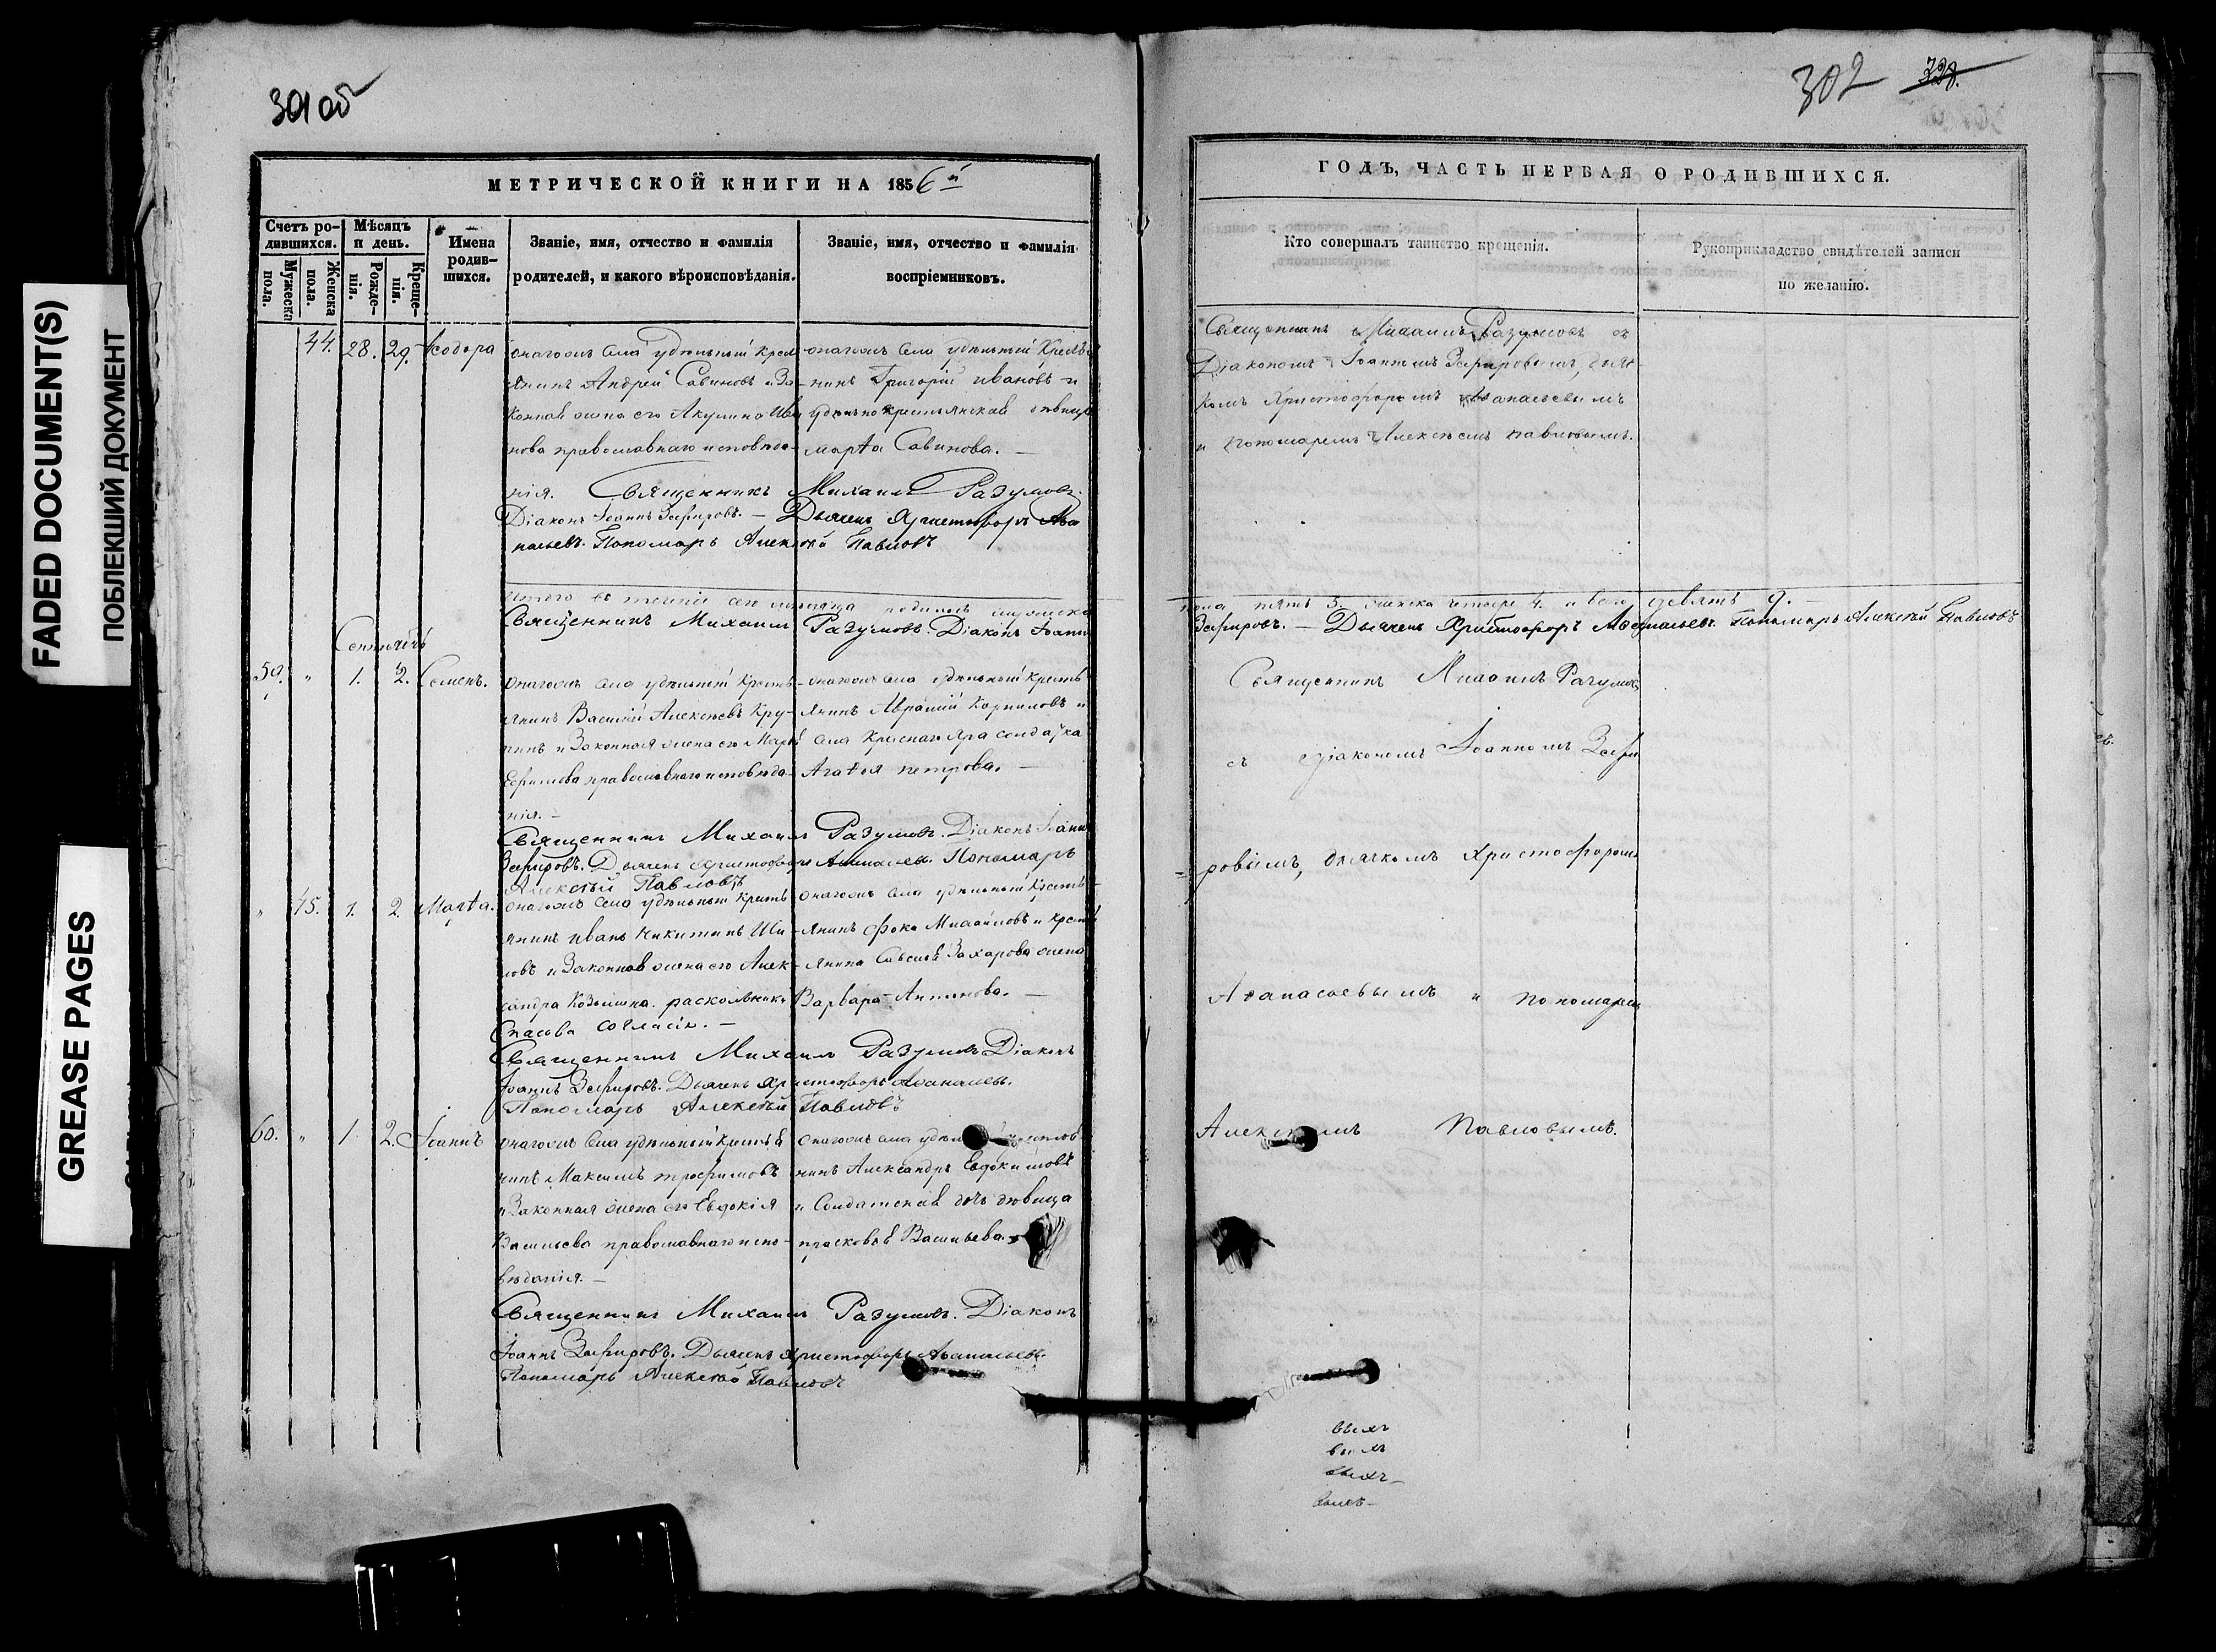 FADED DOCUMENT(S)
ПОБЛЕКШИЙ ДОКУМЕНТ
GREASE PAGES
301 об
МЕТРИЧЕСКОЙ КНИГИ НА 1856й
Счетъ родившихся.
Мужеска пола.
Женска пола.
Мѣсяцъ и день.
Рожденія.
Крещенія.
Имена родившихся.
Званіе, имя, отчество и фамилія
родителей, и какого вѣроисповѣданія.
Званіе, имя, отчество и фамилія
воспріемниковъ.
44. 28. 29. Ѳеодора
онагожъ села удѣльный крест-
янинъ Андрей Савиновъ и за-
конная жена его Акулина Ива
нова православнаго исповѣда-
нія.
онагожъ села удѣльный крестья
нинъ Григорій Ивановъ и
удѣльнокрестьянская дѣвица
Марѳа Савинова.
Священникъ Михаилъ Разумовъ.
Діаконъ Іоаннъ Зефировъ. — Дьячекъ Христофоръ Аѳа
насьевъ. Пономарь Алексѣй Павловъ
Итого въ теченіи сего месяца родилось мужеска
Священникъ Михаилъ Разумовъ. Діаконъ Іоаннъ
Сентябрь
59. " 1. 2. Семенъ.
онагожъ села удѣльный кресть-
янинъ Василій Алексѣевъ Кру-
пинъ и законная жена его Марѳ
Ефимова православнаго исповѣда-
нія. —
онагожъ села удѣльный кресть
янинъ Корниловъ и
села Краснаго Яра солдатка
Агаѳія Петрова. —
Священникъ Михаилъ Разумовъ. Діаконъ Іоаннъ
Зефировъ. Дьячекъ Христофоръ Аѳанасьевъ. Пономарь
Алексѣй Павловъ
" 45. 1. 2. Марѳа.
онагожъ села удѣльный кресть
янинъ Иванъ Никитинъ Ши-
ловъ и законная жена его Алек-
сандра Козьмина. раскольники
Спасова согласія. —
онагожъ села удѣльный кресть-
янинъ Фока Михайловъ и кресть
янина Савелія Захарова жена
Варвара Антонова. —
Священникъ Михаилъ Разумовъ Діаконъ
Іоаннъ Зефировъ. Дьячекъ Христофоръ Аѳанасьевъ.
Пономарь Алексѣй Павловъ
60. " 1. 2. Іоаннъ
онагожъ села удѣльный крестья
нинъ Максимъ Трофимовъ
и законная жена его Евдокія
Васильева православнаго испо-
вѣданія. —
онагожъ села
нинъ Александръ Евдокимовъ
и солдатская дочь дѣвица
Прасковья Васильева.
Священникъ Михаилъ Разумовъ. Діаконъ
Іоаннъ Зефировъ. Дьячекъ Христофоръ Аѳанасьевъ.
Пономарь Алексѣй Павловъ
302 328.
ГОДЪ, ЧАСТЬ ПЕРВАЯ О РОДИВШИХСЯ.
Кто совершалъ таинство крещенія.
Рукоприкладство свидѣтелей записи
по желанію.
Священникъ Михаилъ Разумовъ съ
Діакономъ Іоанномъ Зефировымъ, дьяч-
комъ Христофоромъ Аѳанасьевымъ
и пономаремъ Алексѣемъ Павловымъ.
пола пять 5. женска четыре 4. и всего девять 9. —
Зефировъ. — Дьячекъ Христофоръ Аѳанасьевъ. Пономарь Алексѣй Павловъ
Священникъ Михаилъ Разумовъ
съ діакономъ Іоанномъ Зефи
ровымъ, дьячкомъ Христофоромъ
Аѳанасьевымъ и пономаремъ
Алексѣемъ Павловымъ.